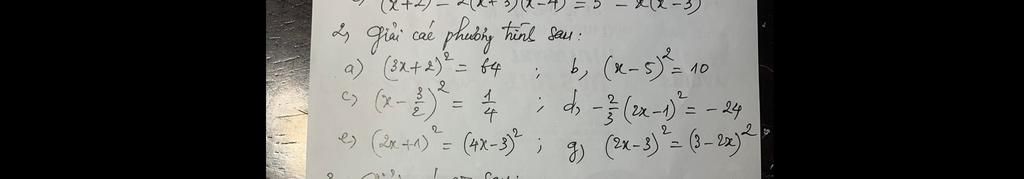 (x+2) - 2(x+3)(x-4) = 5 - x(x-3)
2, Giải các phương trình sau:
a) (3x+2)² = 64 ; b, (x-5)² = 10
c, (x - 3/2)² = 1/4 ; d, -2/3 (2x-1)² = -24
e, (2x+1)² = (4x-3)² ; g, (2x-3)² = (3-2x)²